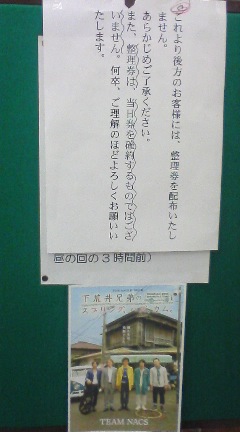 これより後方のお客様には、整理券を配布いたし
ません。
あらかじめご了承ください。
また、整理券は、当日券を確約するものではござ
いません。何卒、ご理解のほどよろしくお願いい
たします。
昼の回の3時間前)
下荒井兄弟の
スプリング、ハズ、カム。
TEAM NACS